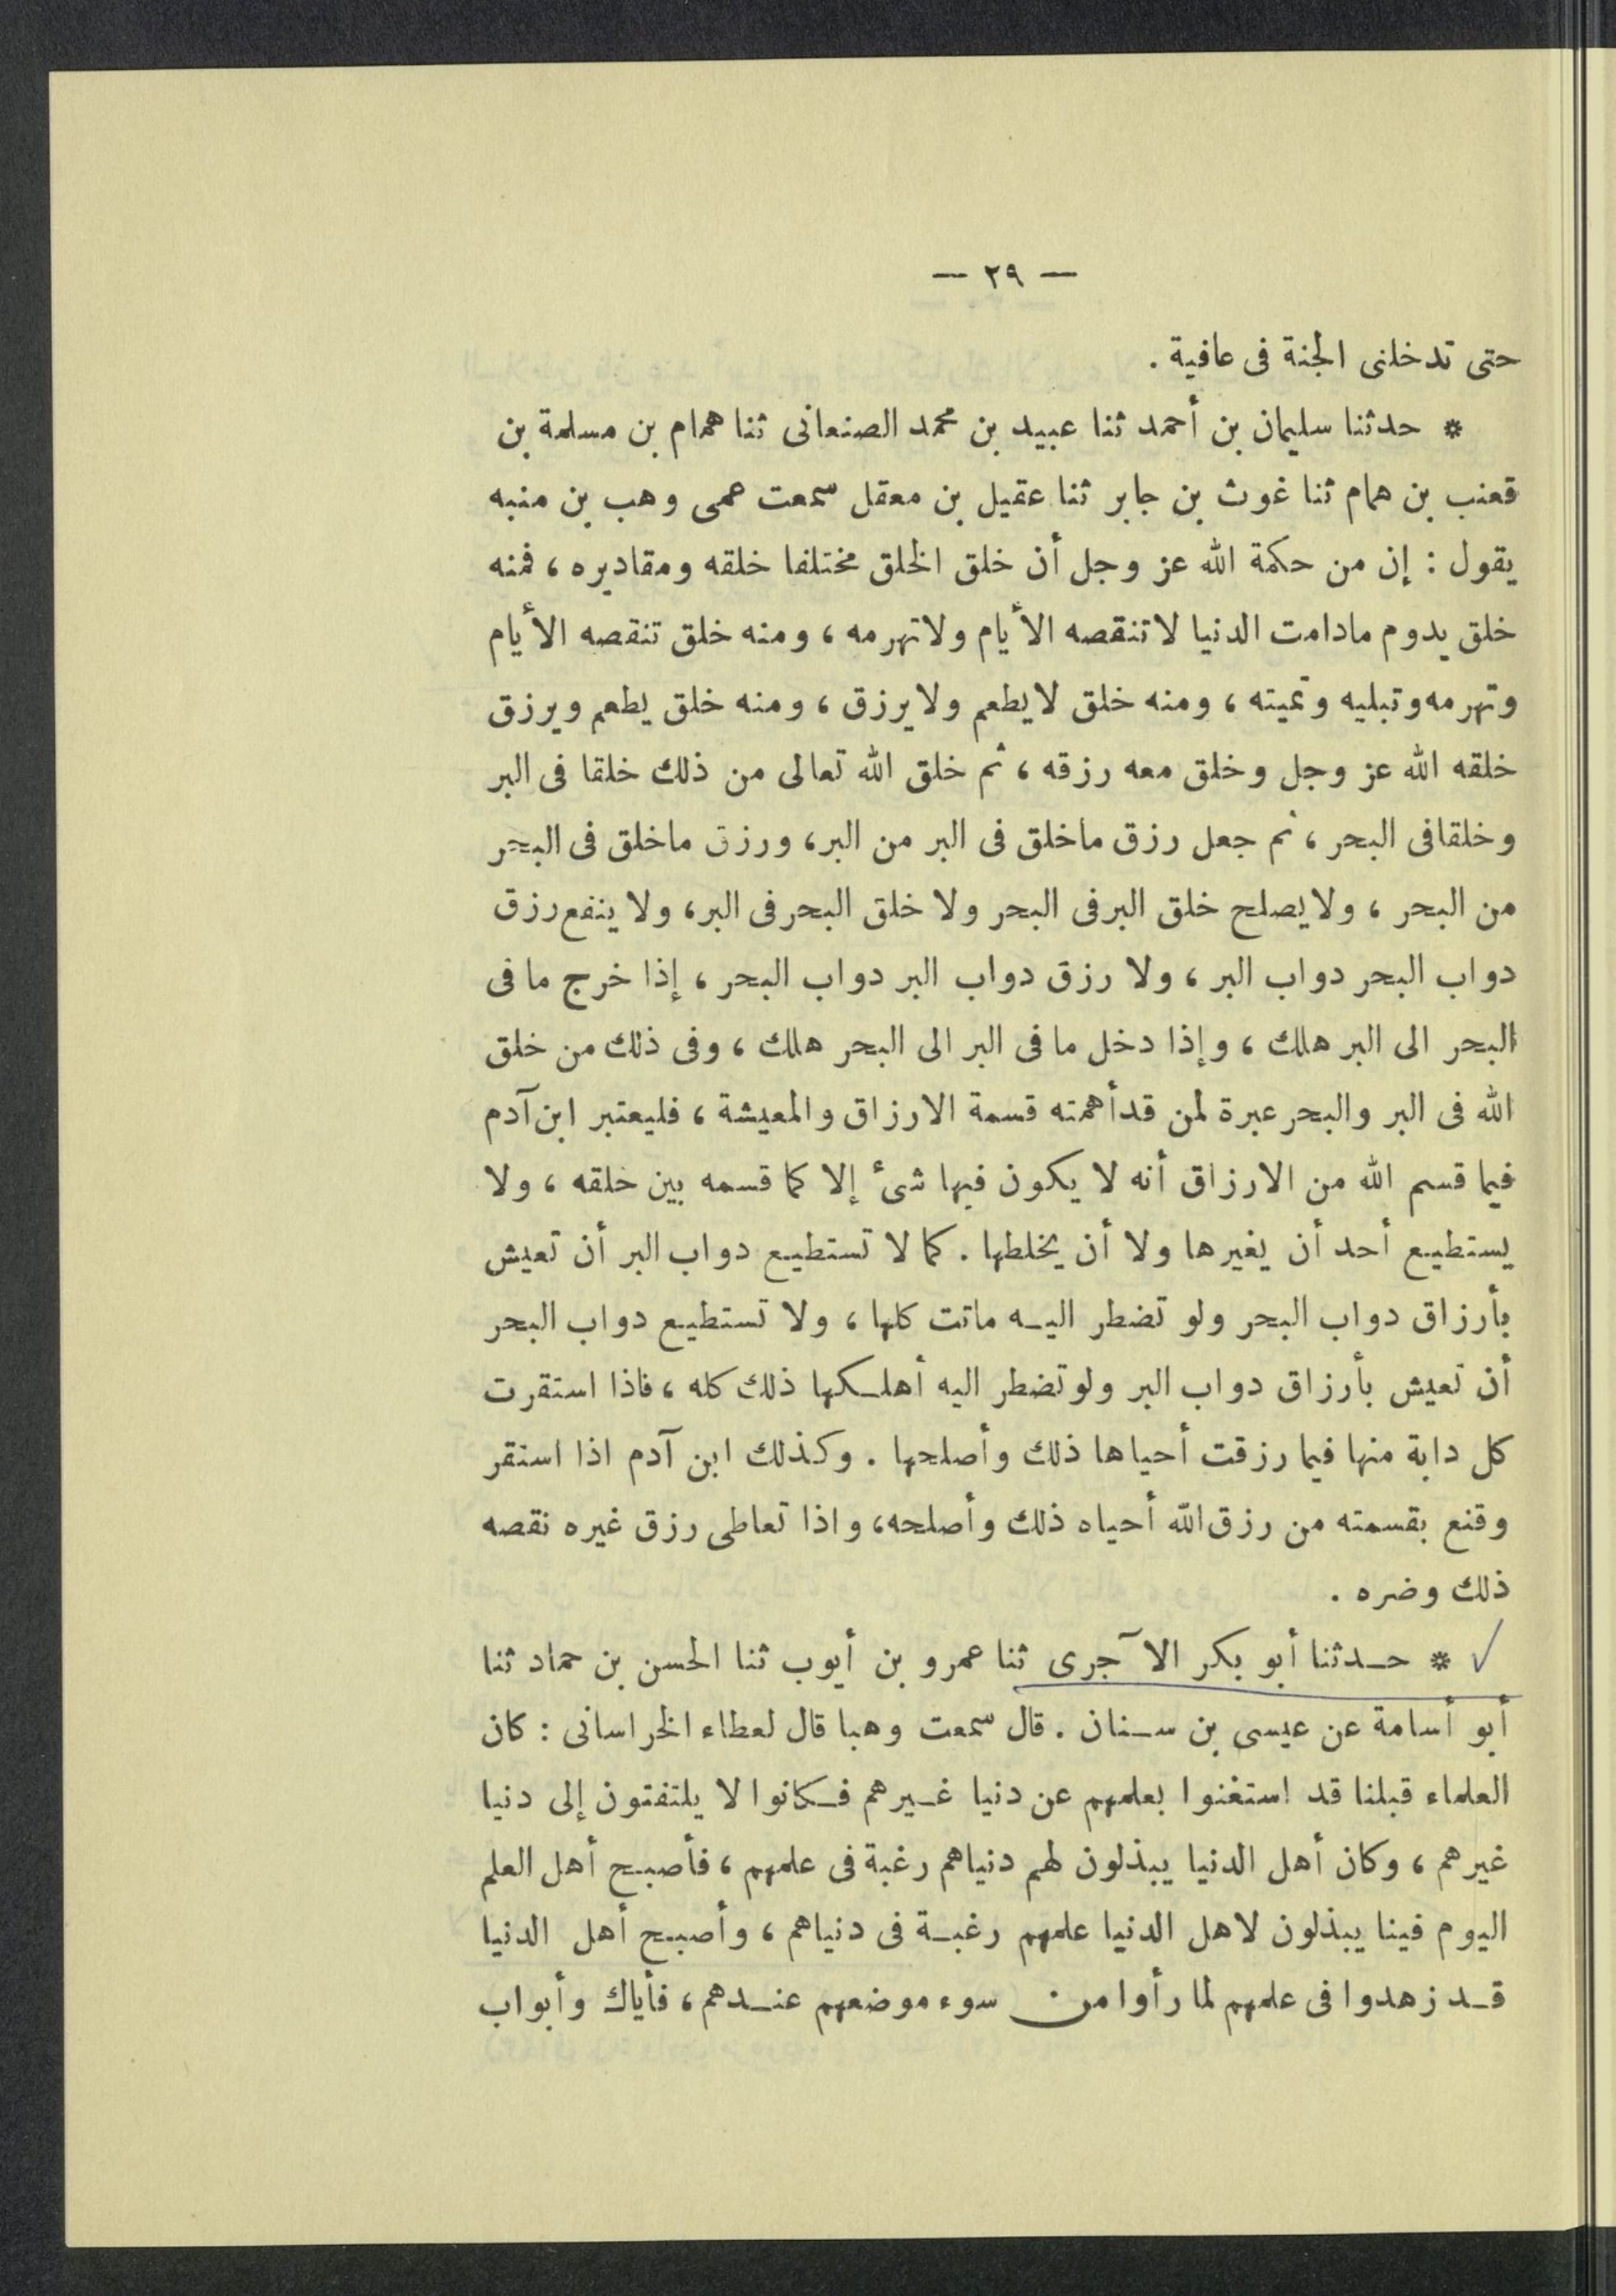 — ٢٩ —
حتى تدخلنى الجنة فى عافية .
* حدثنا سليمان بن أحمد ثنا عبيد بن محمد الصنعانى ثنا همام بن مسلمة بن
قعنب بن همام ثنا غوث بن جابر ثنا عقيل بن معقل سمعت عمى وهب بن منبه
يقول : إن من حكمة الله عز وجل أن خلق الخلق مختلفا خلقه ومقاديره ، فمنه
خلق يدوم مادامت الدنيا لا تنقصه الأيام ولا تهرمه ، ومنه خلق تنقصه الأيام
وتهرمه وتبليه وتميته ، ومنه خلق لا يطعم ولا يرزق ، ومنه خلق يطعم ويرزق
خلقه الله عز وجل وخلق معه رزقه ، ثم خلق الله تعالى من ذلك خلقا فى البر
وخلقا فى البحر ، ثم جعل رزق ماخلق فى البر من البر ، ورزق ماخلق فى البحر
من البحر ، ولا يصلح خلق البر فى البحر ولا خلق البحر فى البر ، ولا ينفع رزق
دواب البحر دواب البر ، ولا رزق دواب البر دواب البحر ، إذا خرج ما فى
البحر الى البر هلك ، وإذا دخل ما فى البر الى البحر هلك ، وفى ذلك من خلق
الله فى البر والبحر عبرة لمن قد أهمته قسمة الارزاق والمعيشة ، فليعتبر ابن آدم
فيما قسم الله من الارزاق أنه لا يكون فيها شىء إلا كما قسمه بين خلقه ، ولا
يستطيع أحد أن يغيرها ولا أن يخلطها . كما لا تستطيع دواب البر أن تعيش
بأرزاق دواب البحر ولو تضطر اليه ماتت كلها ، ولا تستطيع دواب البحر
أن تعيش بأرزاق دواب البر ولو تضطر اليه أهلكها ذلك كله ، فاذا استقرت
كل دابة منها فيما رزقت أحياها ذلك وأصلحها . وكذلك ابن آدم اذا استقر
وقنع بقسمته من رزق الله أحياه ذلك وأصلحه ، واذا تعاطى رزق غيره نقصه
ذلك وضره .
* حدثنا أبو بكر الآجرى ثنا عمرو بن أيوب ثنا الحسن بن حماد ثنا
أبو أسامة عن عيسى بن سنان . قال سمعت وهبا قال لعطاء الخراسانى : كان
العلماء قبلنا قد استغنوا بعلمهم عن دنيا غيرهم فكانوا لا يلتفتون إلى دنيا
غيرهم ، وكان أهل الدنيا يبذلون لهم دنياهم رغبة فى علمهم ، فأصبح أهل العلم
اليوم فينا يبذلون لاهل الدنيا علمهم رغبة فى دنياهم ، وأصبح أهل الدنيا
قد زهدوا فى علمهم لما رأوا من سوء موضعهم عندهم ، فأياك وأبواب